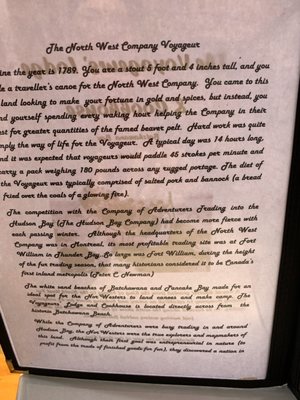 The North West Company Voyageur
ine the year is 1789. You are a stout 5 foot and 4 inches tall, and you
le a traveller's canoe for the North West Company. You came to this
land looking to make your fortune in gold and spices, but instead, you
nd yourself spending every waking hour helping the Company in their
est for greater quantities of the famed beaver pelt. Hard work was quite
mply the way of life for the Voyageur. A typical day was 14 hours long,
nd it was expected that voyageurs would paddle 45 strokes per minute and
carry a pack weighing 180 pounds across any rugged portage. The diet of
the Voyageur was typically comprised of salted pork and bannock (a bread
fried over the coals of a glowing fire).
The competition with the Company of Adventurers Trading into the
Hudson Bay (The Hudson Bay Company) had become more fierce with
each passing winter. Although the headquarters of the North West
Company was in Montreal, its most profitable trading site was at Fort
William in Thunder Bay. So large was Fort William, during the height
of the fur trading season, that many historians considered it to be Canada's
first inland metropolis (Peter C Newman)
The white sand beaches of Batchawana and Pancake Bay made for an
ideal spot for the Nor'Westers to land canoes and make camp. The
Voyageurs' Lodge and Cookhouse is located directly across from the
historic Batchawana Beach.
While the Company of Adventurers were busy trading in and around
Hudson Bay, the Nor'Westers were the true explorers and mapmakers of
this land. Although their first goal was entrepreneurial in nature (to
profit from the trade of finished goods for furs), they discovered a nation in